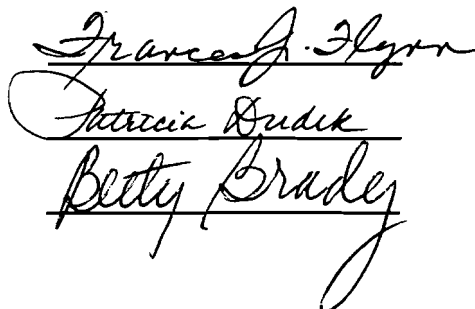 Frances J. Flynn
Patricia Dudek
Betty Brady